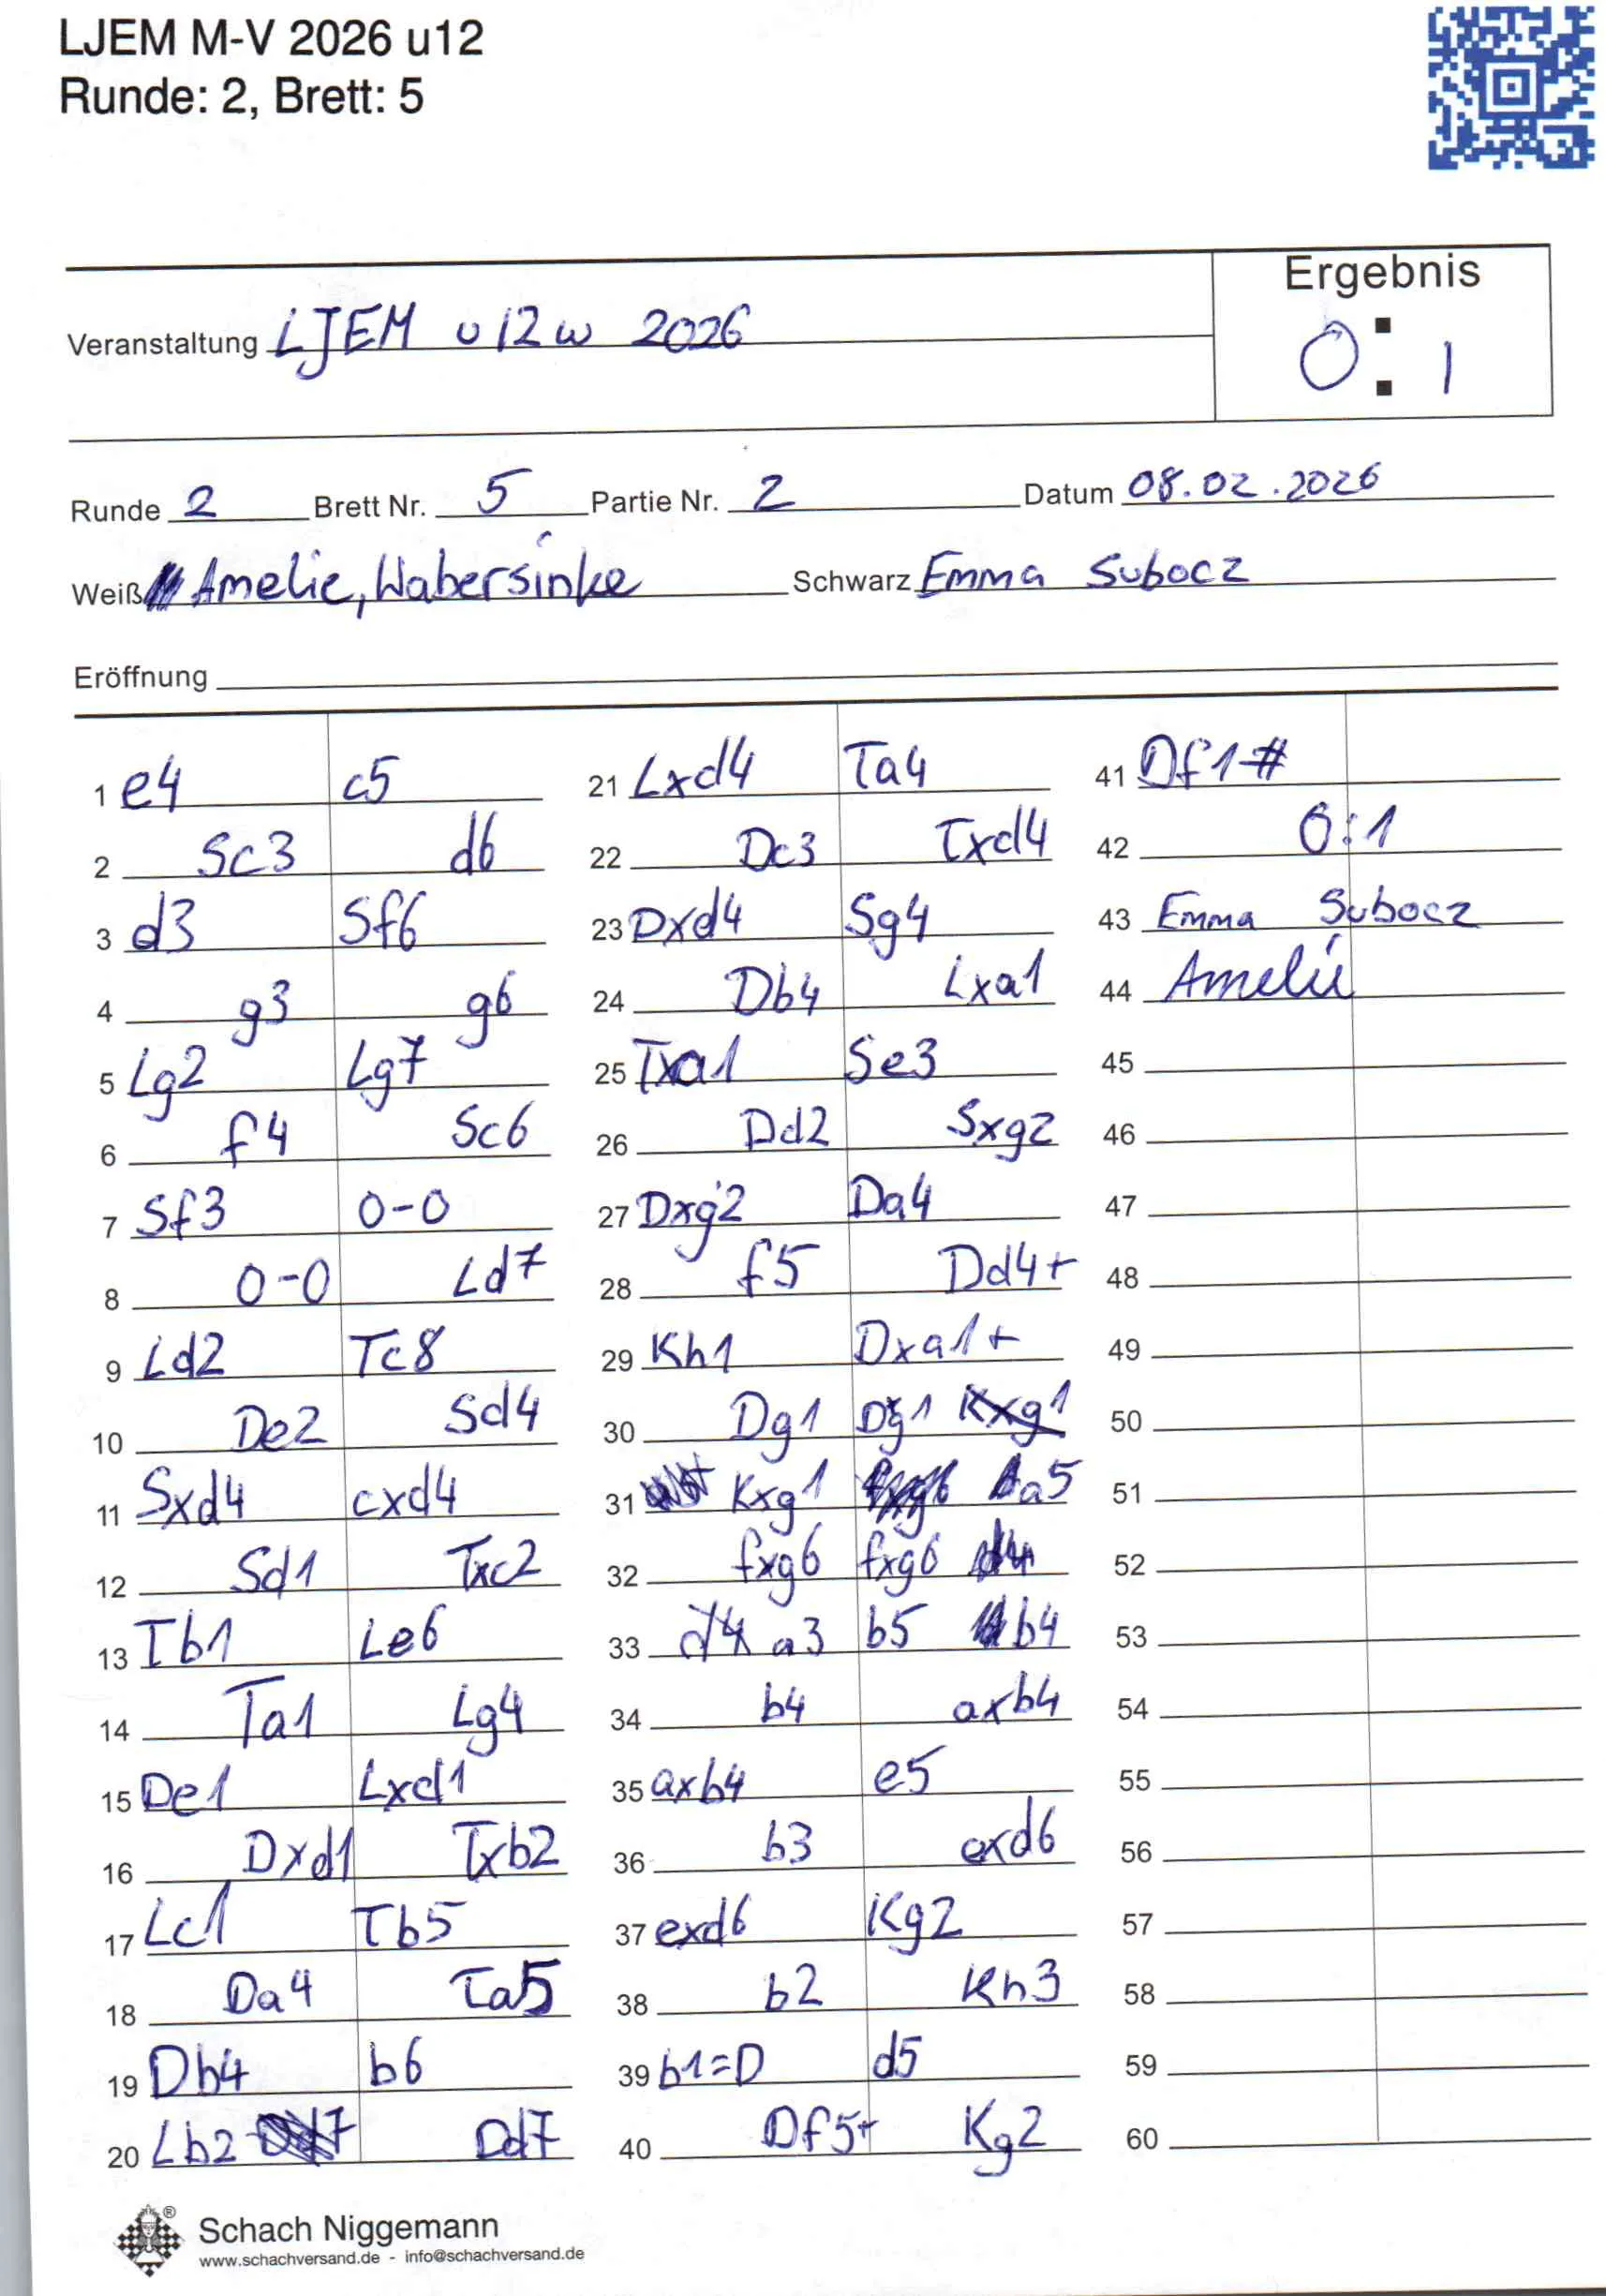 LJEM M-V 2026 u12
Runde: 2, Brett: 5
Ergebnis
Veranstaltung LJEM u12w 2026
0 : 1
Runde 2 Brett Nr. 5 Partie Nr. 2 Datum 08.02.2026
Weiß Amelie, Wabersinke Schwarz Emma Subocz
Eröffnung
1 e4 c5 21 Lxd4 Ta4 41 Df1#
2 Sc3 d6 22 Dc3 Txd4 42 0:1
3 d3 Sf6 23 Dxd4 Sg4 43 Emma Subocz
4 g3 g6 24 Db4 Lxa1 44 Amelie
5 Lg2 Lg7 25 Txa1 Se3 45
6 f4 Sc6 26 Dd2 Sxg2 46
7 Sf3 0-0 27 Dxg2 Da4 47
8 0-0 Ld7 28 f5 Dd4+ 48
9 Ld2 Tc8 29 Kh1 Dxa1+ 49
10 De2 Sd4 30 Dg1 Dg1 Kxg1 50
11 Sxd4 cxd4 31 Kxg1 a5 51
12 Sd1 Txc2 32 fxg6 fxg6 52
13 Tb1 Le6 33 d4 a3 b5 b4 53
14 Ta1 Lg4 34 b4 axb4 54
15 De1 Lxd1 35 axb4 e5 55
16 Dxd1 Txb2 36 b3 exd6 56
17 Lc1 Tb5 37 exd6 Kg2 57
18 Da4 Ta5 38 b2 Kh3 58
19 Db4 b6 39 b1=D d5 59
20 Lb2 Dd7 40 Df5+ Kg2 60
Schach Niggemann
www.schachversand.de - info@schachversand.de